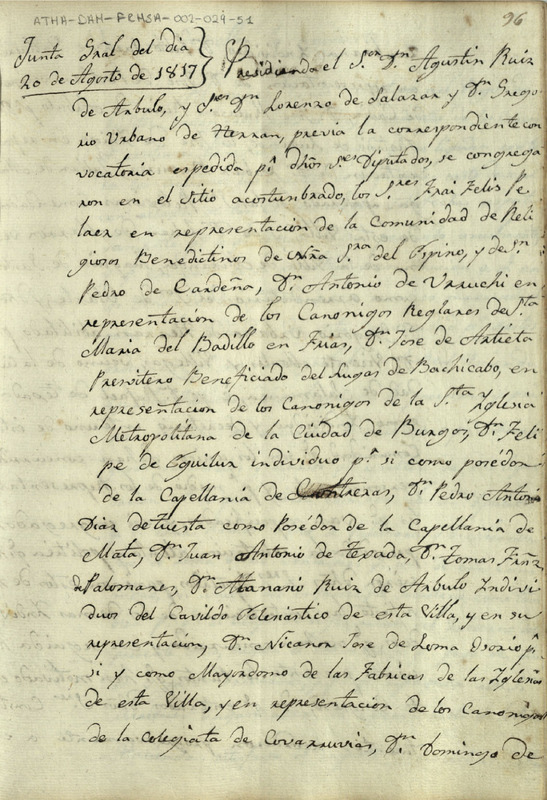 ATHA-DAH-FEHSA-002-029-51
96
Junta Gral del dia
20 de Agosto de 1817
Presidiendo el Sor. Dn. Agustin Ruiz
de Arbulo, y Sres. Dn. Lorenzo de Salazar y Dn. Grego
rio Urbano de Herran, previa la correspondiente con
vocatoria espedida pr. dhos Sres. Diputados, se congrega
ron en el Sitio acostumbrado, los Sres. Frai Felix Pe
laez en representacion de la Comunidad de Reli
giosos Benedictinos de Ntra Sra. del Espino, y de Sn.
Pedro de Cardeña, Dn. Antonio de Urruchi en
representacion de los Canonigos Reglares de Sta.
Maria del Badillo en Frias, Dn. Jose de Artieta
Presvitero Beneficiado del Lugar de Bachicabo, en
representacion de los Canonigos de la Sta. Yglesia
Metropolitana de la Ciudad de Burgos, Dn. Feli
pe de Eguiluz individuo pr. si como poseedor
de la Capellania de Contreras, Dn. Pedro Antonio
Diaz de tuesta como Poseedor de la Capellania de
Mata, Dn. Juan Antonio de Texada, Dn. Tomas Frñz.
de Palomares, Dn. Atanasio Ruiz de Arbulo Indivi
duos del Cavildo Eclesiastico de esta Villa, y en su
representacion, Dn. Nicanor Jose de Loma Osorio pr.
si y como Mayordomo de las Fabricas de las Yglesias
de esta Villa, y en representacion de los Canonigos
de la Colegiata de Covarruvias, Dn. Domingo de